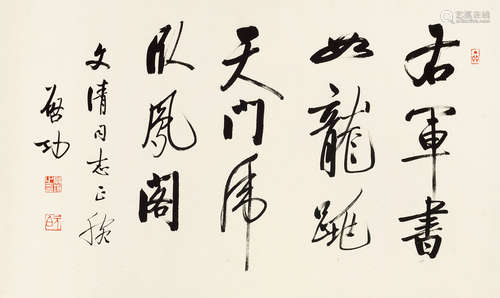 右軍書
如龍跳
天門虎
臥鳳閣
文清同志正腕
啟功